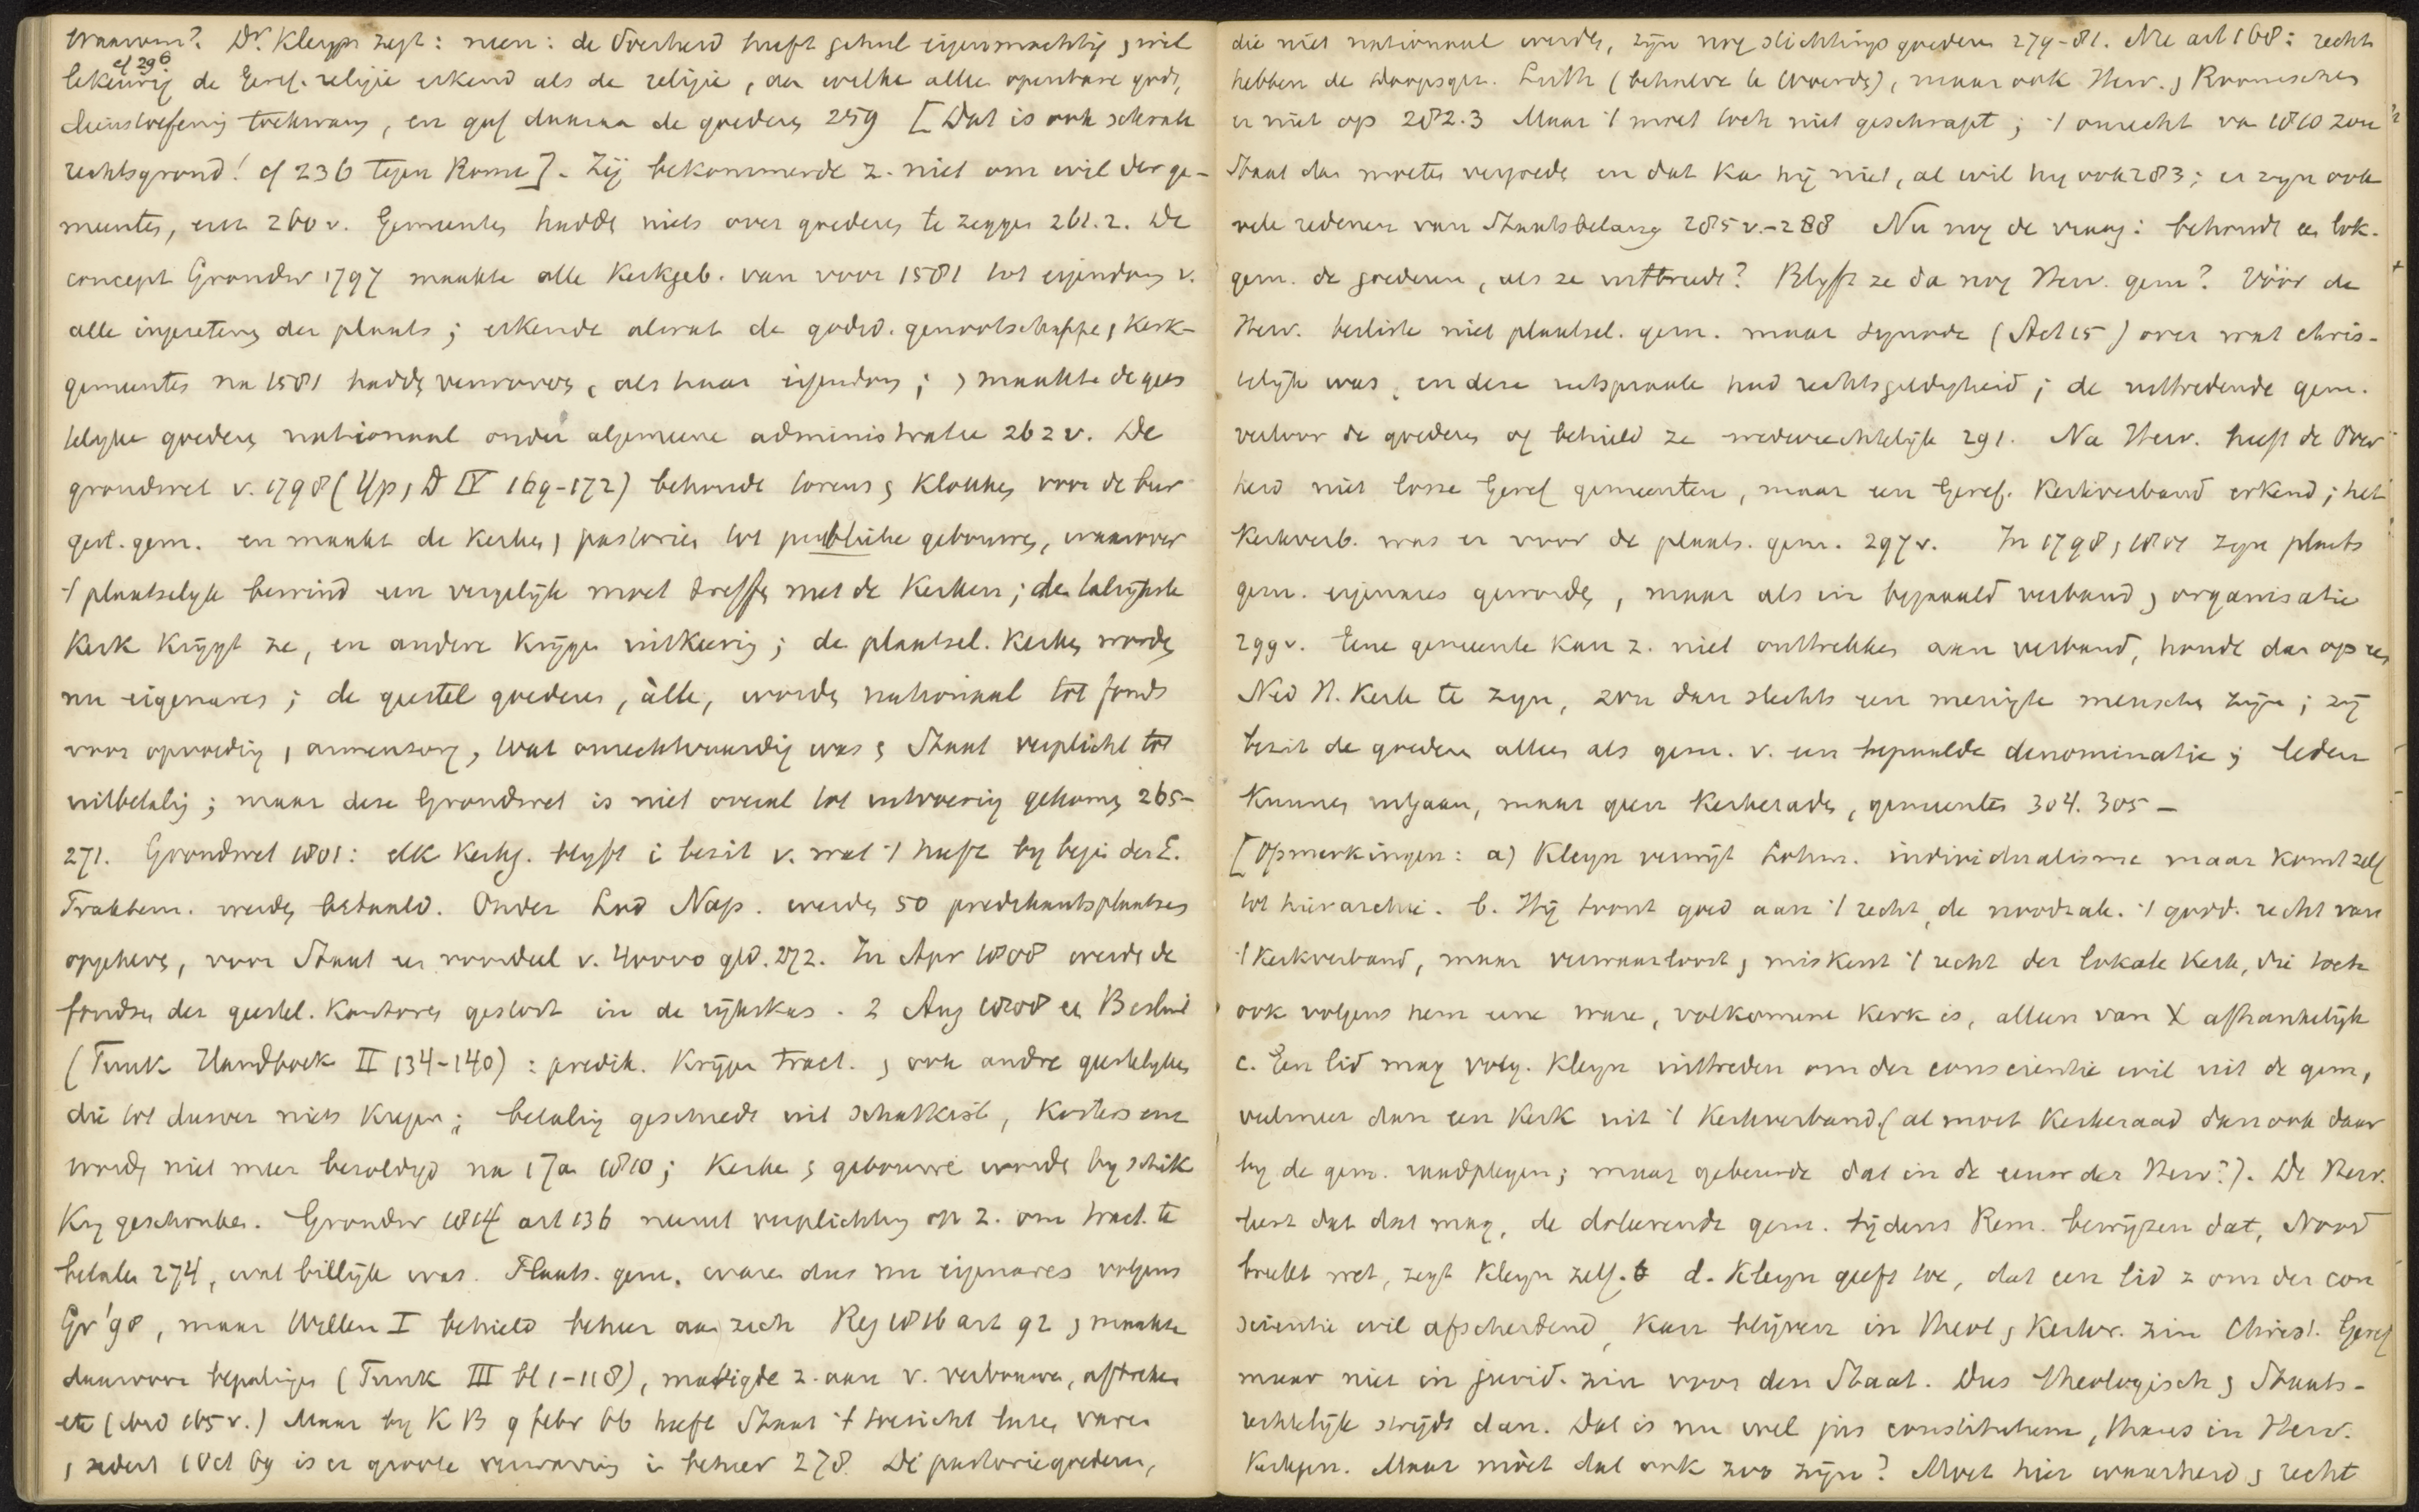 waarom? Dr. Kleyn zegt: neen: de Overheid heeft geheel eigenmachtig, wil
cf 296
lekeurig de Geref. religie erkend als de religie, aan welke alleen openbare gods,
dienstoefening toekwam, en gaf daaraan de goederen 259 [Dat is ook schrale
rechtsgrond! cf 236 tegen Rome]. Zij bekommerde z. niet om wil der ge-
meenten, enz 260 v. Gemeenten hadden niets over goederen te zeggen 261.2. De
concept Grondw 1797 maakte alle Kerkgeb. van voor 1581 tot eigendom v.
alle ingezetenen der plaats; erkende alwat de godsd. genootschappen, Kerk-
gemeenten na 1581 hadden verworven, als haar eigendom; , maakte de gees
telyke goederen nationaal onder algemeene administratie 262 v. De
grondwet v. 1798 (Yp, D IV 169-172) behoudt torens, klokken voor de bur
gerl. gem. en maakt de Kerken, pastorien tot publieke gebouwen, waarover
't plaatselyk bewind een vergelyk moet treffen met de Kerken; de talrijkste
Kerk krijgt ze, en andere krijgen uitkeering; de plaatsel. Kerken worden
nu eigenares; de geestel goederen, àlle, worden nationaal tot fonds
voor opvoeding, armenzorg, wat onrechtvaardig was, Staat verplicht tot
uitbetaling; maar deze Grondwet is niet overal tot uitvoering gekomen 265-
271. Grondwet 1801: elk Kerkg. blyft i bezit v. wat 't heeft by begin der E.
Traktem. werden betaald. Onder Lod Nap. werden 50 predikantsplaatsen
opgeheven, voor Staat een voordeel v. 40000 gld. 272. In Apr 1808 werden de
fondsen der geestel. Kantoren gestort in de rijkskas. 2 Aug 1808 een Besluit
(Tunk Handboek II 134-140): predik. krijgen tract., ook andre geestelyken
die tot dusver niets kregen; betaling geschiedt uit schatkist, kosters enz
worden niet meer bezoldigd na 1 Jan 1810; Kerken, gebouwen worden by schik
king geschonken. Grondw 1814 art 136 neemt verplichting op z. om tract. te
betalen 274, wat billijk was. Plaats. gem. waren dus nu eigenares volgens
Gr '98, maar Willem I behield beheer aan zich Regl 1816 art 92, maakte
daarvoor bepalingen (Tunk III bl 1-118), matigde z. aan v. verbouwen, afbreken
etc (ibid 165 v.) Maar by K B 9 febr 66 heeft Staat 't toezicht laten varen
, sedert 1 Oct 69 is er groote verwarring in beheer 278. De pastoriegoederen,
die niet nationaal werden, zijn nog stichtingsgoederen 279-81. Aan art 168: recht
hebben de Doopsgez. Luth (behalve te Woerden), maar ook Herv., Roomschen
er niet op 282.3 Maar 't moet toch niet geschrapt; 't onrecht van 1810 zou
Staat dan moeten vergoeden en dat kan hij niet, al wil hy ook 283; er zijn ook
vele redenen van Staatsbelang 285 v.-288 Nu nog de vraag: behoudt een lok.
gem. de goederen, als ze uittreedt? Blyft ze dan nog Herv. gem? Vóór de
Herv. besliste niet plaatsel. gem. maar synode (Act 15) over wat chris-
telijk was, en deze uitspraak had rechtsgeldigheid; de uittredende gem.
verloor de goederen of behield ze wederrechtelijk 291. Na Herv. heeft de Over
heid niet losse Geref gemeenten, maar een Geref. Kerkverband erkend; het
Kerkverb. was er voor de plaats. gem. 297 v. In 1798, 1801 zijn plaats
gem. eigenares geworden, maar als in bepaald verband, organisatie
299 v. Eene gemeente kan z. niet onttrekken aan verband, houdt dan op een
Ned H. Kerk te zyn, zou dan slechts een menigte menschen zijn; zij
bezit de goederen alleen als gem. v. een bepaalde denominatie; leden
kunnen uitgaan, maar geen Kerkeraden, gemeenten 304. 305 —
[Opmerkingen: a) Kleyn verwijt Lohm. individualisme maar komt zelf
tot hierarchie. b. Hij toont goed aan 't recht, de noodzak. 't godd. recht van
't Kerkverband, maar verwaarloost, miskent 't recht der lokale Kerk, die toch
ook volgens hem eene ware, volkomene Kerk is, alleen van X afhankelijk
c. Een lid mag volg. Kleyn uittreden om der conscientie wil uit de gem,
veelmeer dan een Kerk uit 't Kerkverband (al moet Kerkeraad dan ook daar
by de gem. raadplegen; maar gebeurde dat in de eeuw der Herv?). De Herv.
leert dat dat mag, de doleerende gem. tijdens Rem. bewijzen dat, Nood
breekt wet, zegt Kleyn zelf. d. Kleyn geeft toe, dat een lid z om der con
scientie wil afscheidend, kan blijven in theol, Kerkr. zin Christ. Geref
maar niet in jurid. zin voor den Staat. Dus theologisch, Staats-
rechtelijk strijdt dan. Dat is nu wel jus constitutum, thans in Herv.
Kerkgen. Maar mòet dat ook zoo zijn? Moet hier waarheid, recht